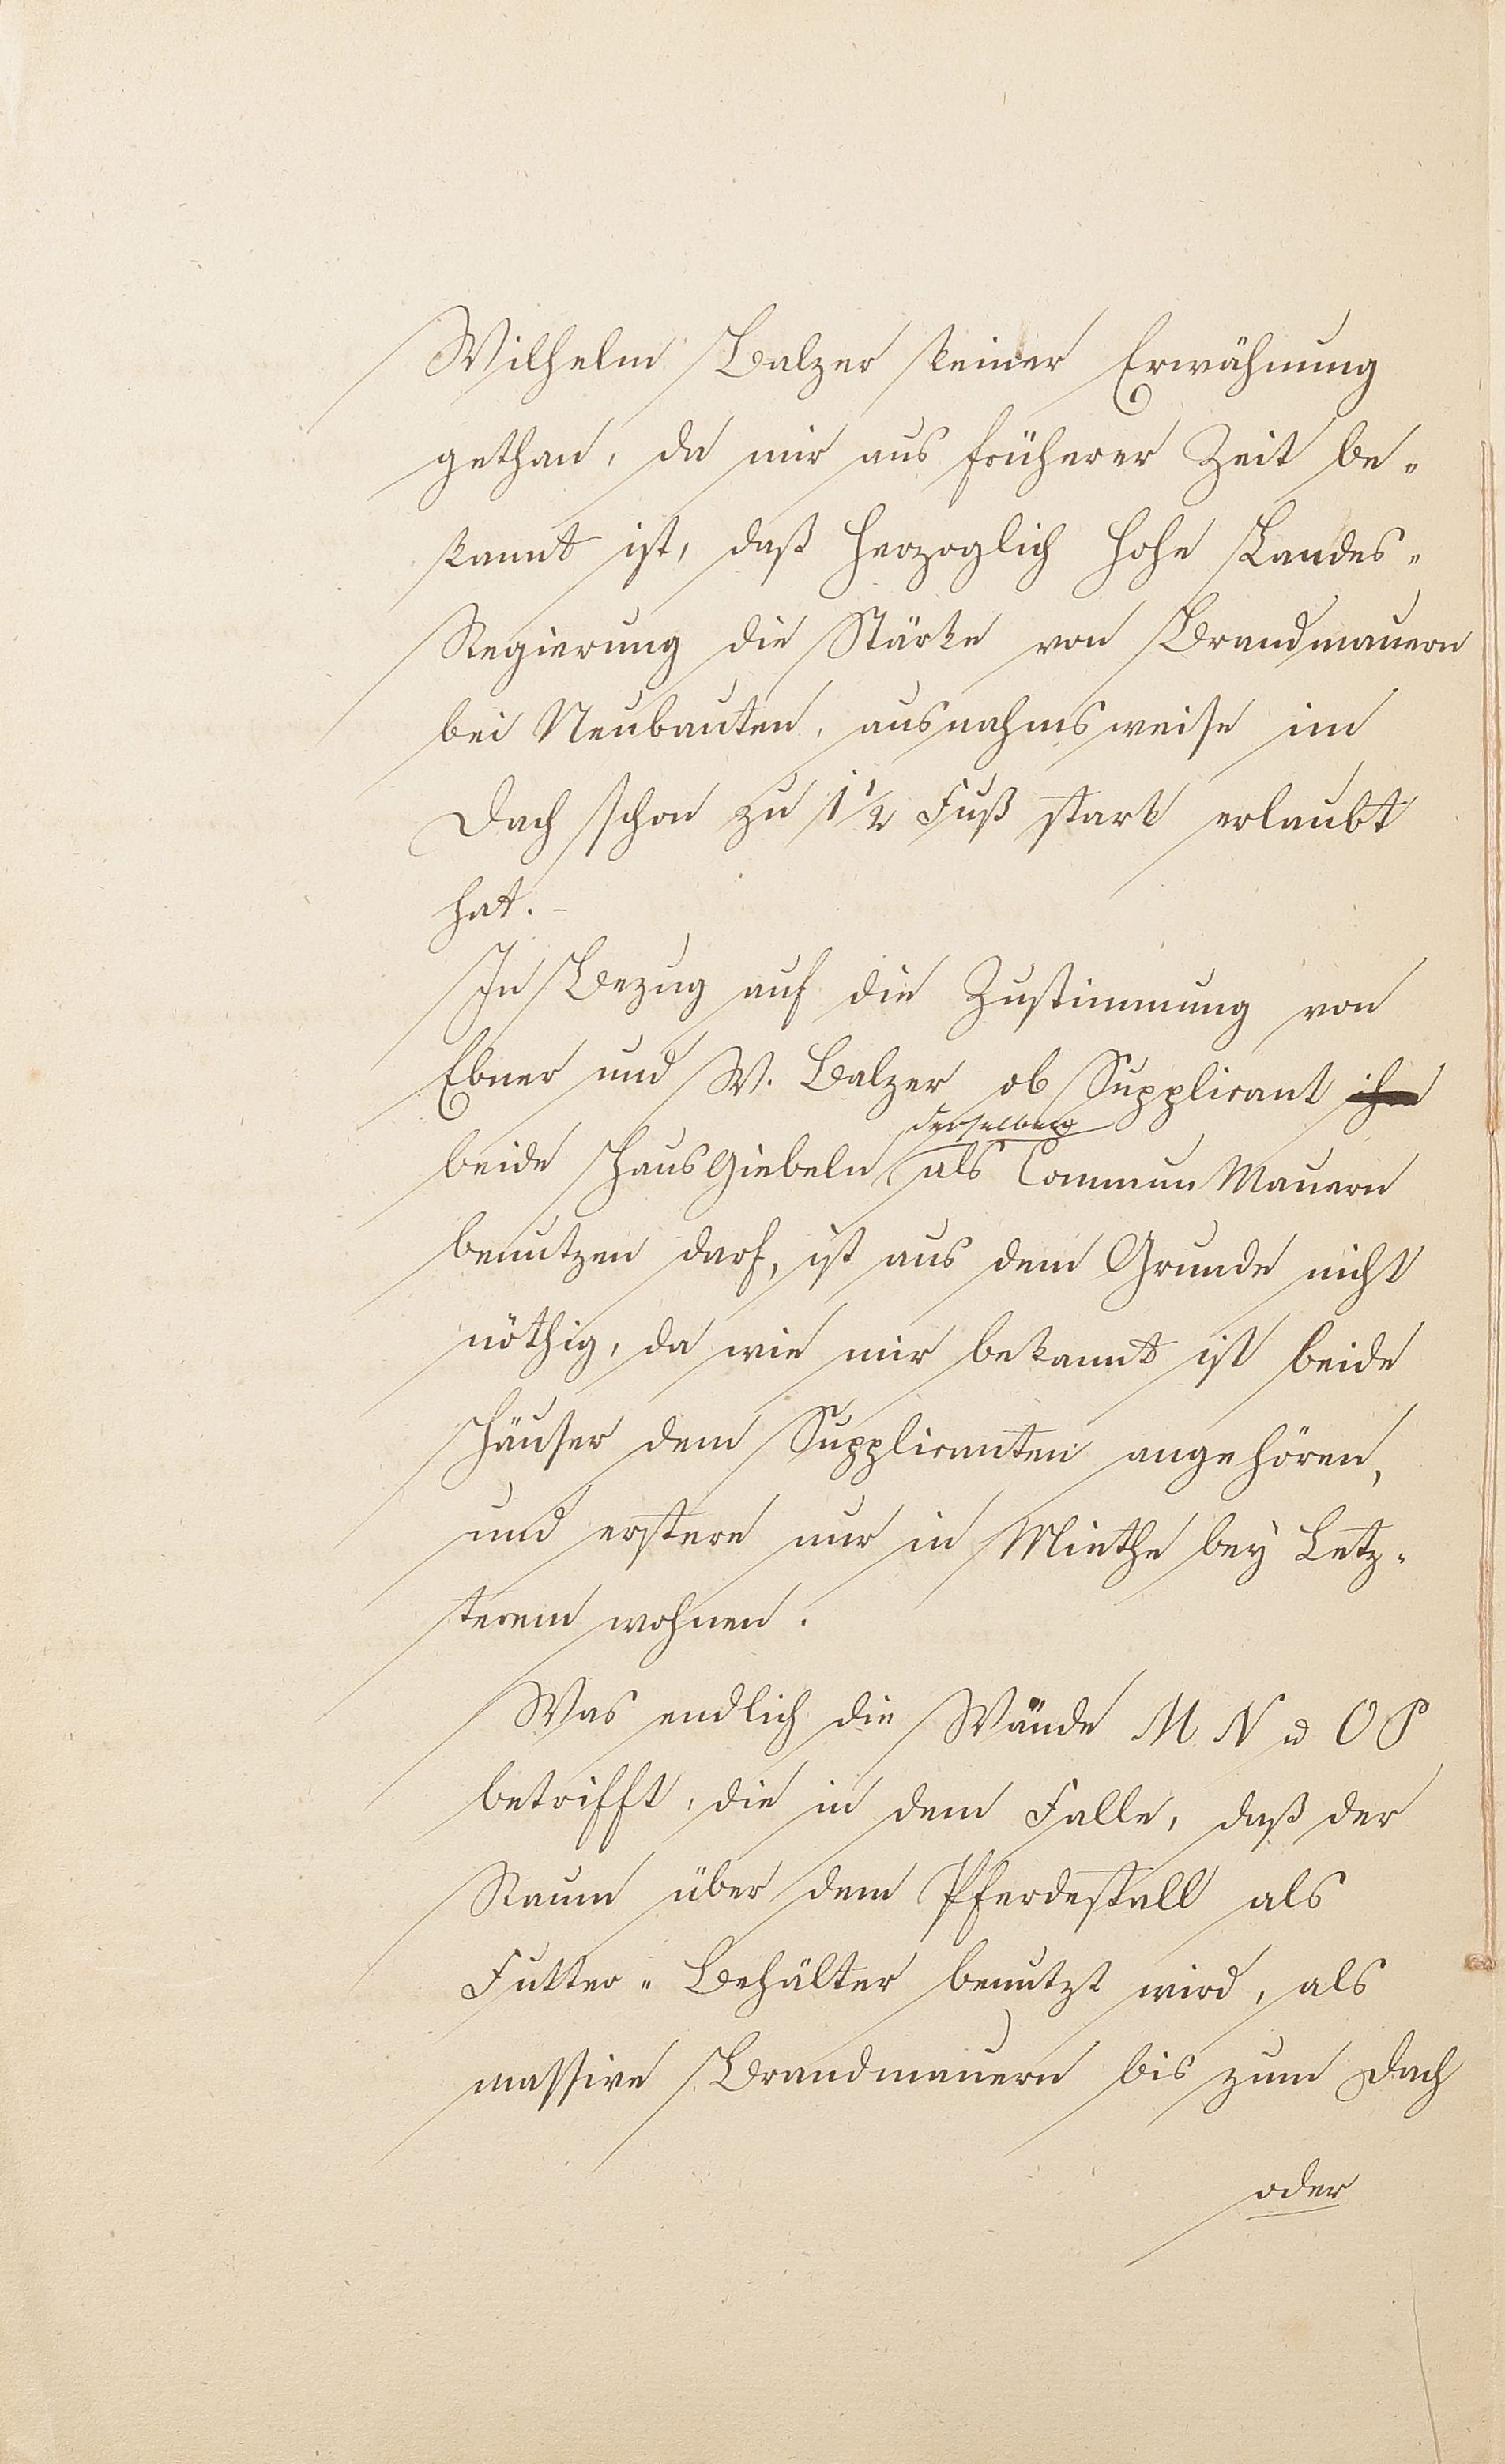 Wilhelm Balzer keiner Erwähnung
gethan, da mir aus früherer Zeit be-
kannt ist, daß Herzoglich Hohe Landes-
Regierung die Stärke von Brandmauern
bei Neubauten, ausnahmsweise im
Dach schon zu 1 1/2 Fuß stark erlaubt
hat. -
In Bezug auf die Zustimmung von
Ebner und W. Balzer ob Supplicant
derselben
beide Haus Giebeln als Commun Mauern
benutzen darf, ist aus dem Grunde nicht
nöthig, da wie mir bekannt ist beide
Häuser dem Supplicanten angehören,
und erstere nur in Miethe bey Letz-
terem wohnen.
Was endlich die Wände M. N u O P
betrifft, die in dem Falle, daß der
Raum über dem Pferdestall als
Futter-Behälter benutzt wird, als
massive Brandmauern bis zum Dach
oder